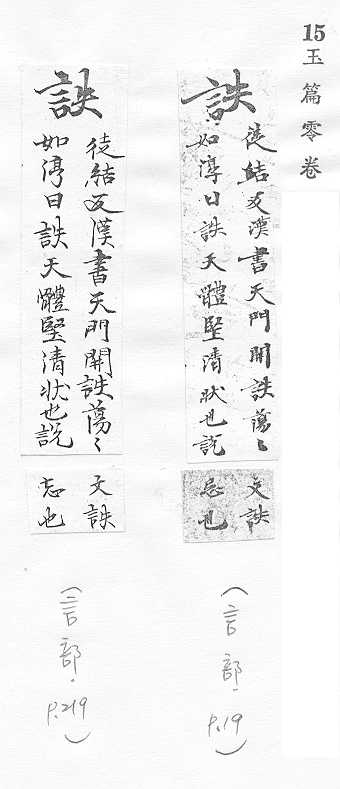 15玉篇零卷
詄
徒結反漢書天門開詄蕩〻
如淳曰詄天體堅清狀也說
文詄
忘也
(言部. P.19)
詄
徒結反漢書天門開詄蕩〻
如淳曰詄天體堅清狀也說
文詄
忘也
(言部. P.219)